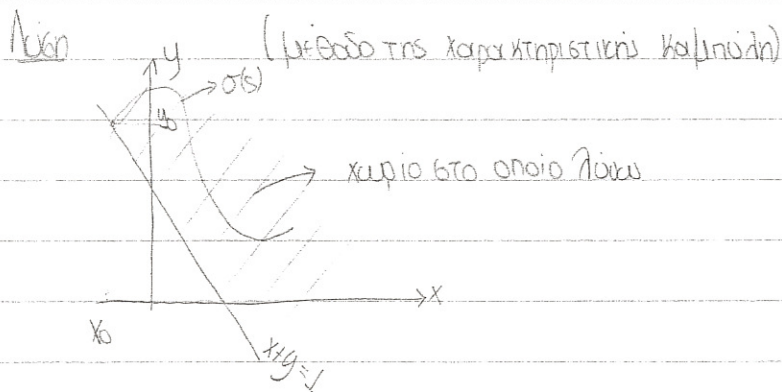 Λύση (μέθοδο της χαρακτηριστικής καμπύλη)
y
σ(s)
y₀
χωρίο στο οποίο λύνω
x
x₀
x+y=1